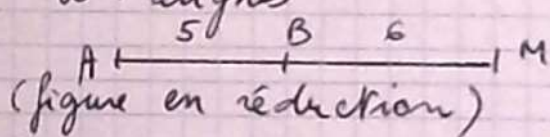 5 B 6
A M
(figure en réduction)